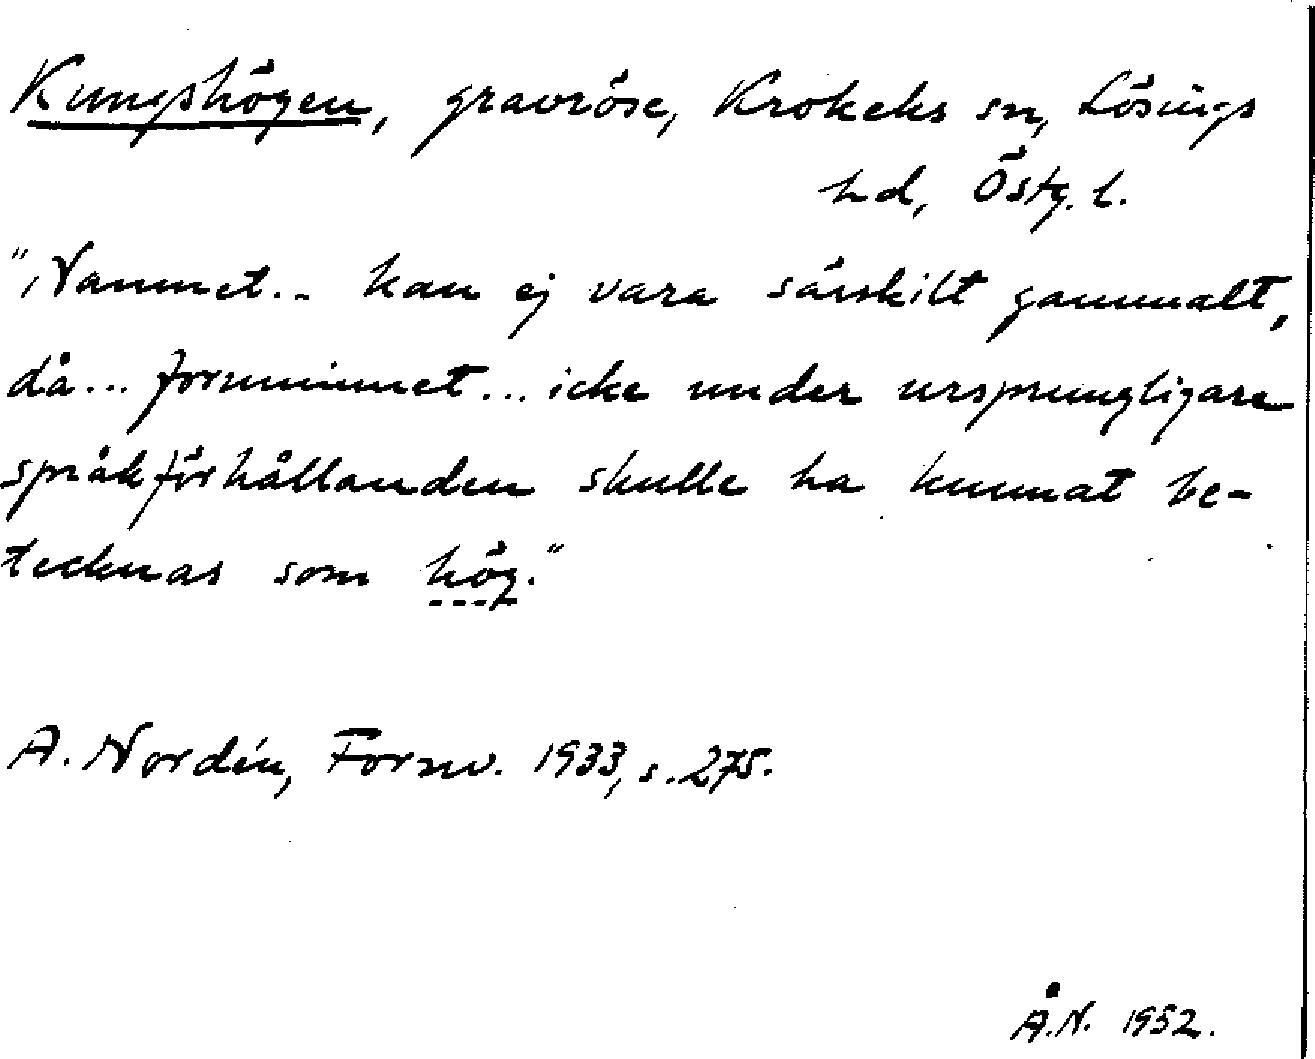 Kungshögen, gravröse, Krokeks sn, Lösings
hd, Östg. l.
"Namnet.. kan ej vara särskilt gammalt,
då... fornminnet... icke under ursprungligare
språkförhållanden skulle ha kunnat be-
tecknas som hög."
A. Nordén, Fornv. 1933, s. 275.
Å.N. 1952.